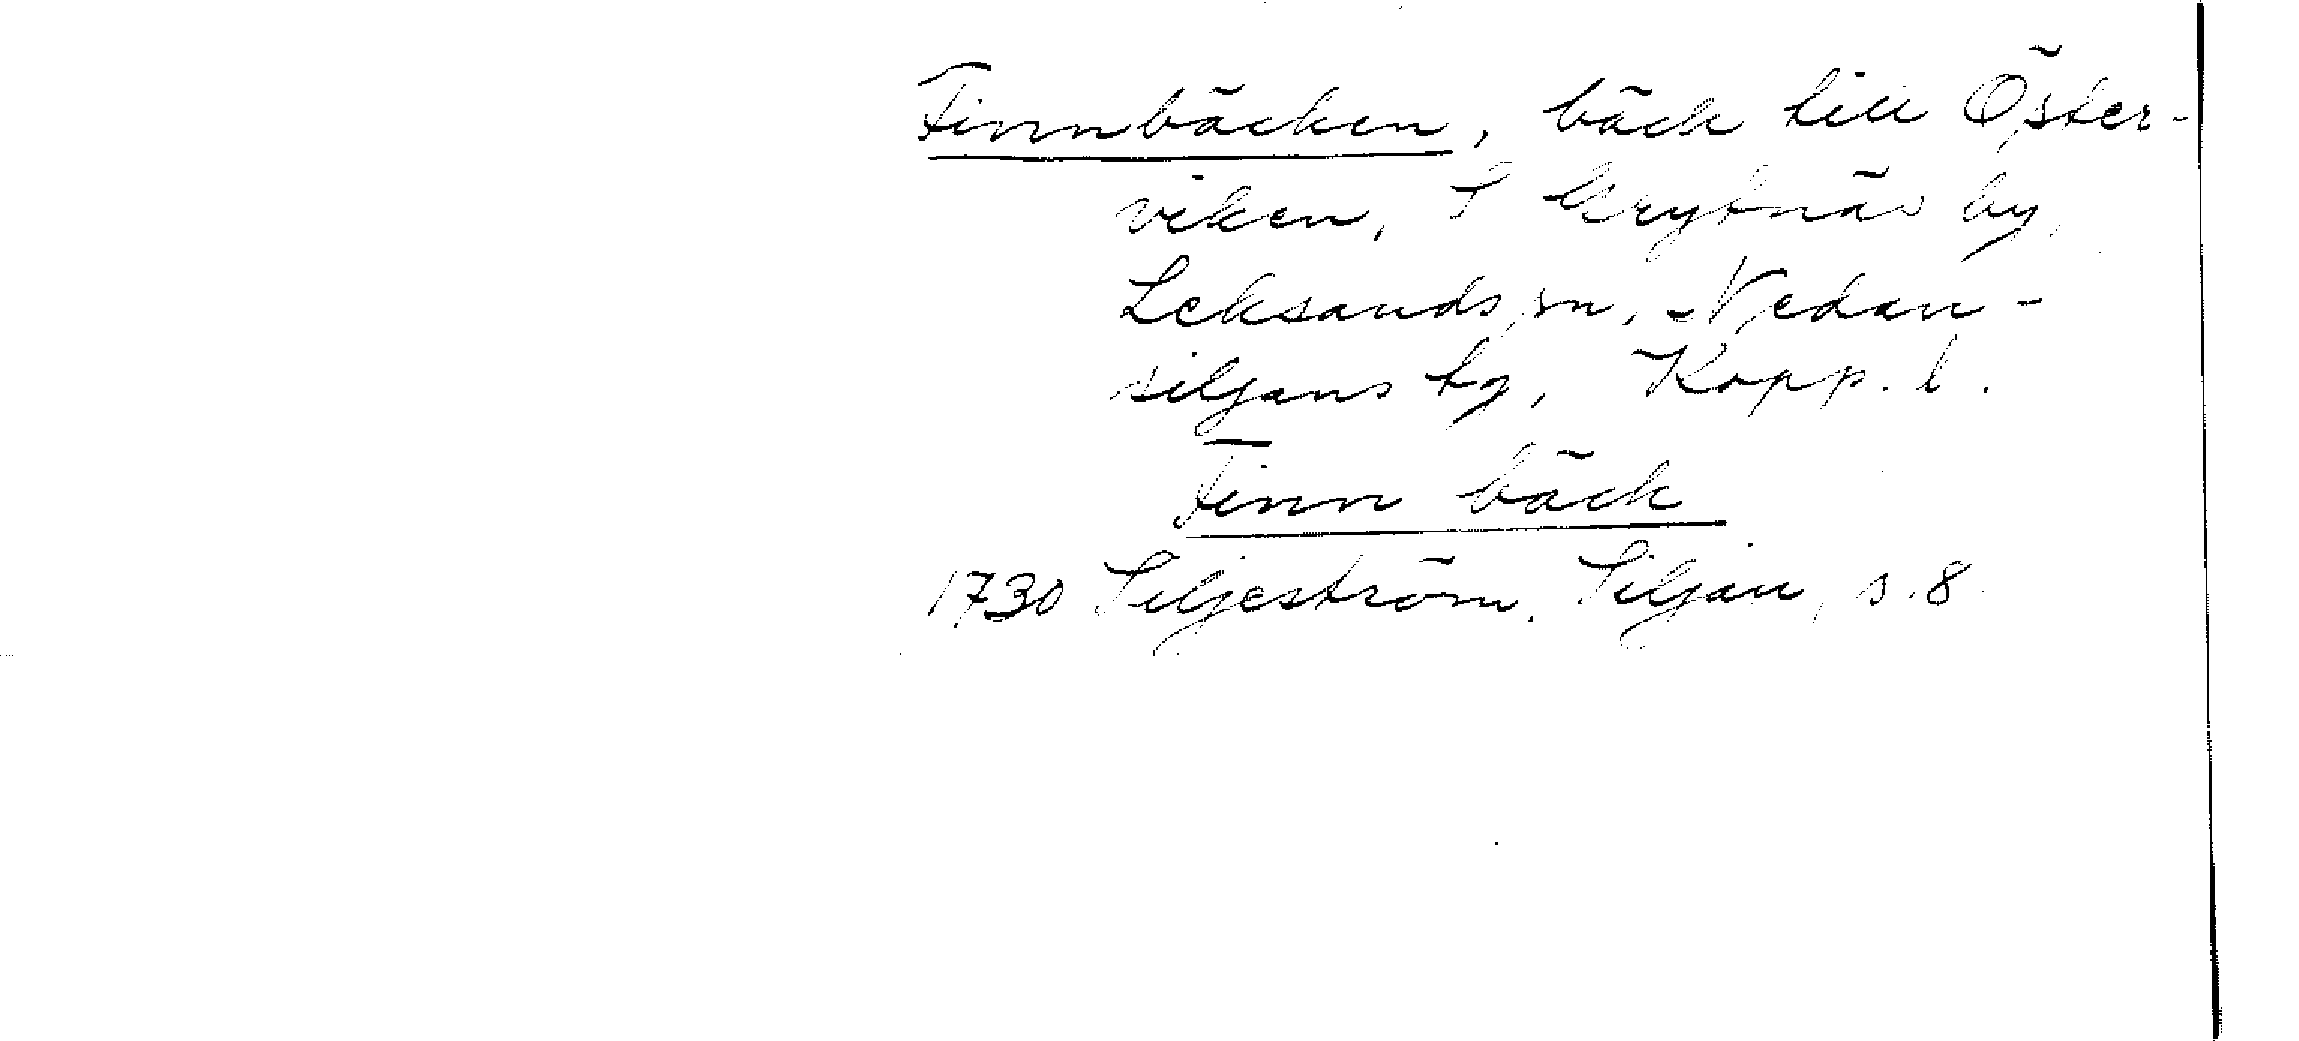 Finnbäcken, bäck till Öster-
viken, S Grytnäs by,
Leksands sn, Nedan-
siljans tg, Kopp. l.
Finn bäck
1730 Siljeström, Siljan, s. 8